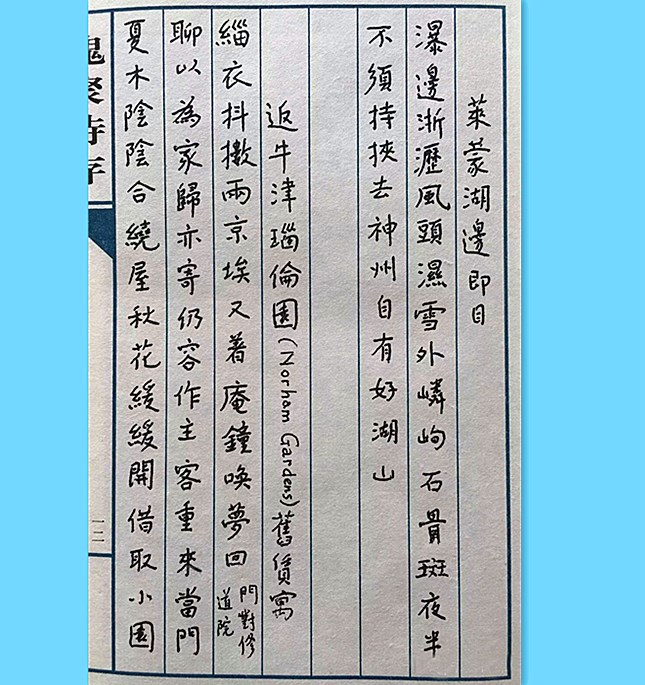 萊蒙湖邊即目
瀑邊淅瀝風頭濕雪外嶙峋石骨斑夜半
不須持挾去神州自有好湖山
返牛津瑙倫園(Norham Gardens)舊賃寓
緇衣抖擻兩京埃又著庵鐘喚夢回門對修道院
聊以為家歸亦寄仍容作主客重來當門
夏木陰陰合繞屋秋花緩緩開借取小園